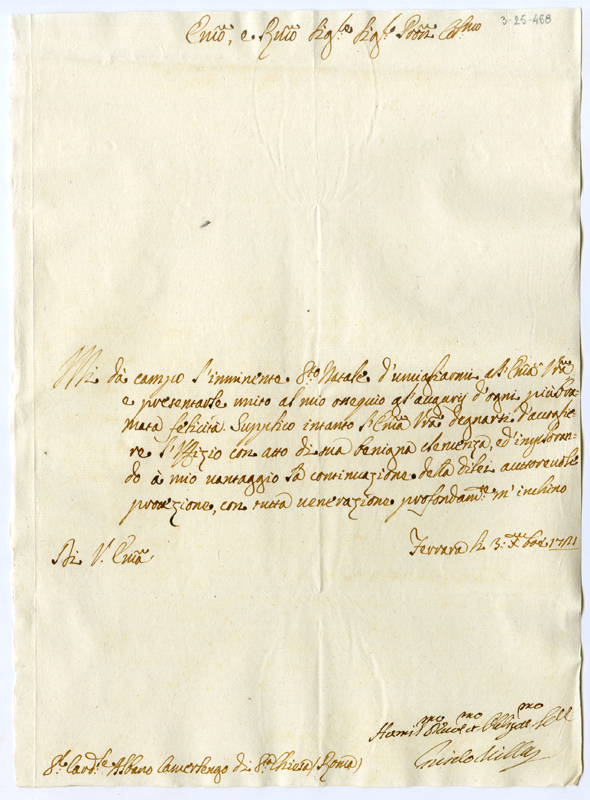 3-25-468
Em̃o, e Rm̃o Sig.re Sig.re Prõn Col.mo
Mi dà campo l'imminente S.to Natale d'umiliarmi all'Em̃a Vr̃a
e presentarle unito al mio ossequio gl'augurj d'ogni più bra-
mata felicità. Supplico intanto l'Em̃a Vr̃a degnarsi d'accoglie-
re l'Uffizio con atto di sua benigna clemenza, ed'imploran-
do à mio vantaggio la continuazione della di lei autorevole
protezione, con tutta venerazione profondam.te m'inchino
Di V.a Em̃a
Ferrara li 3: Xbre 1721
Humil.mo Devot.mo et Oblig.mo
Guido Villa
S.r Card.le Albano Camerlengo di S.ta Chiesa (Roma)